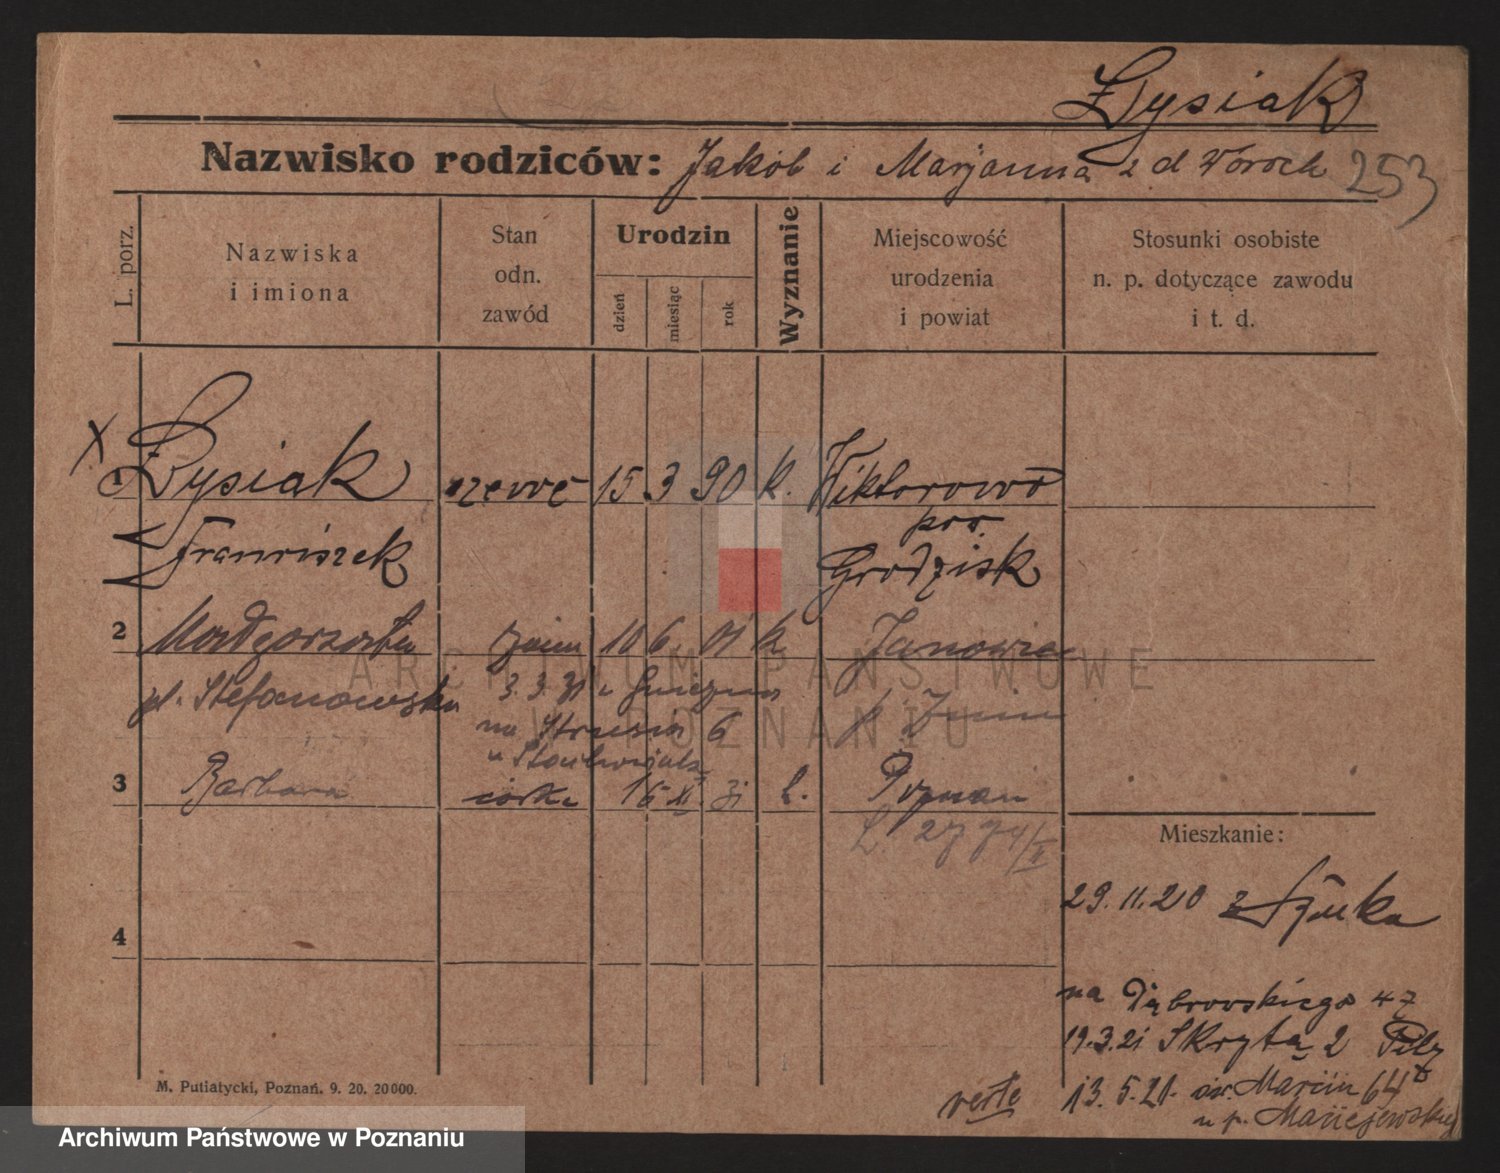 Łysiak
Nazwisko rodziców: Jakób i Marjanna z d Woroch 253
L. porz.
Nazwiska
i imiona
Stan
odn.
zawód
Urodzin
dzień
miesiąc
rok
Wyznanie
Miejscowość
urodzenia
i powiat
Stosunki osobiste
n. p. dotyczące zawodu
i t. d.
X
1 Łysiak szewc 15 3 90 k. Wiktorowo
pow.
Franciszek Grodzisk
2 Małgorzata żona 10 6 01 k Janowiec
Stefanowska 3.3.31 z Gniezna
na 6
3 Barbara córka 16 XI 31 k. Poznań
Mieszkanie:
29.11.20 z
4
na Dąbrowskiego 47
19.3.21 Skryta 2
13.5.21. św. Marcin 64
u p. Maciejewskiej
verte
M. Putiatycki, Poznań. 9. 20. 20000.
ARCHIWUM PAŃSTWOWE
W POZNANIU
Archiwum Państwowe w Poznaniu